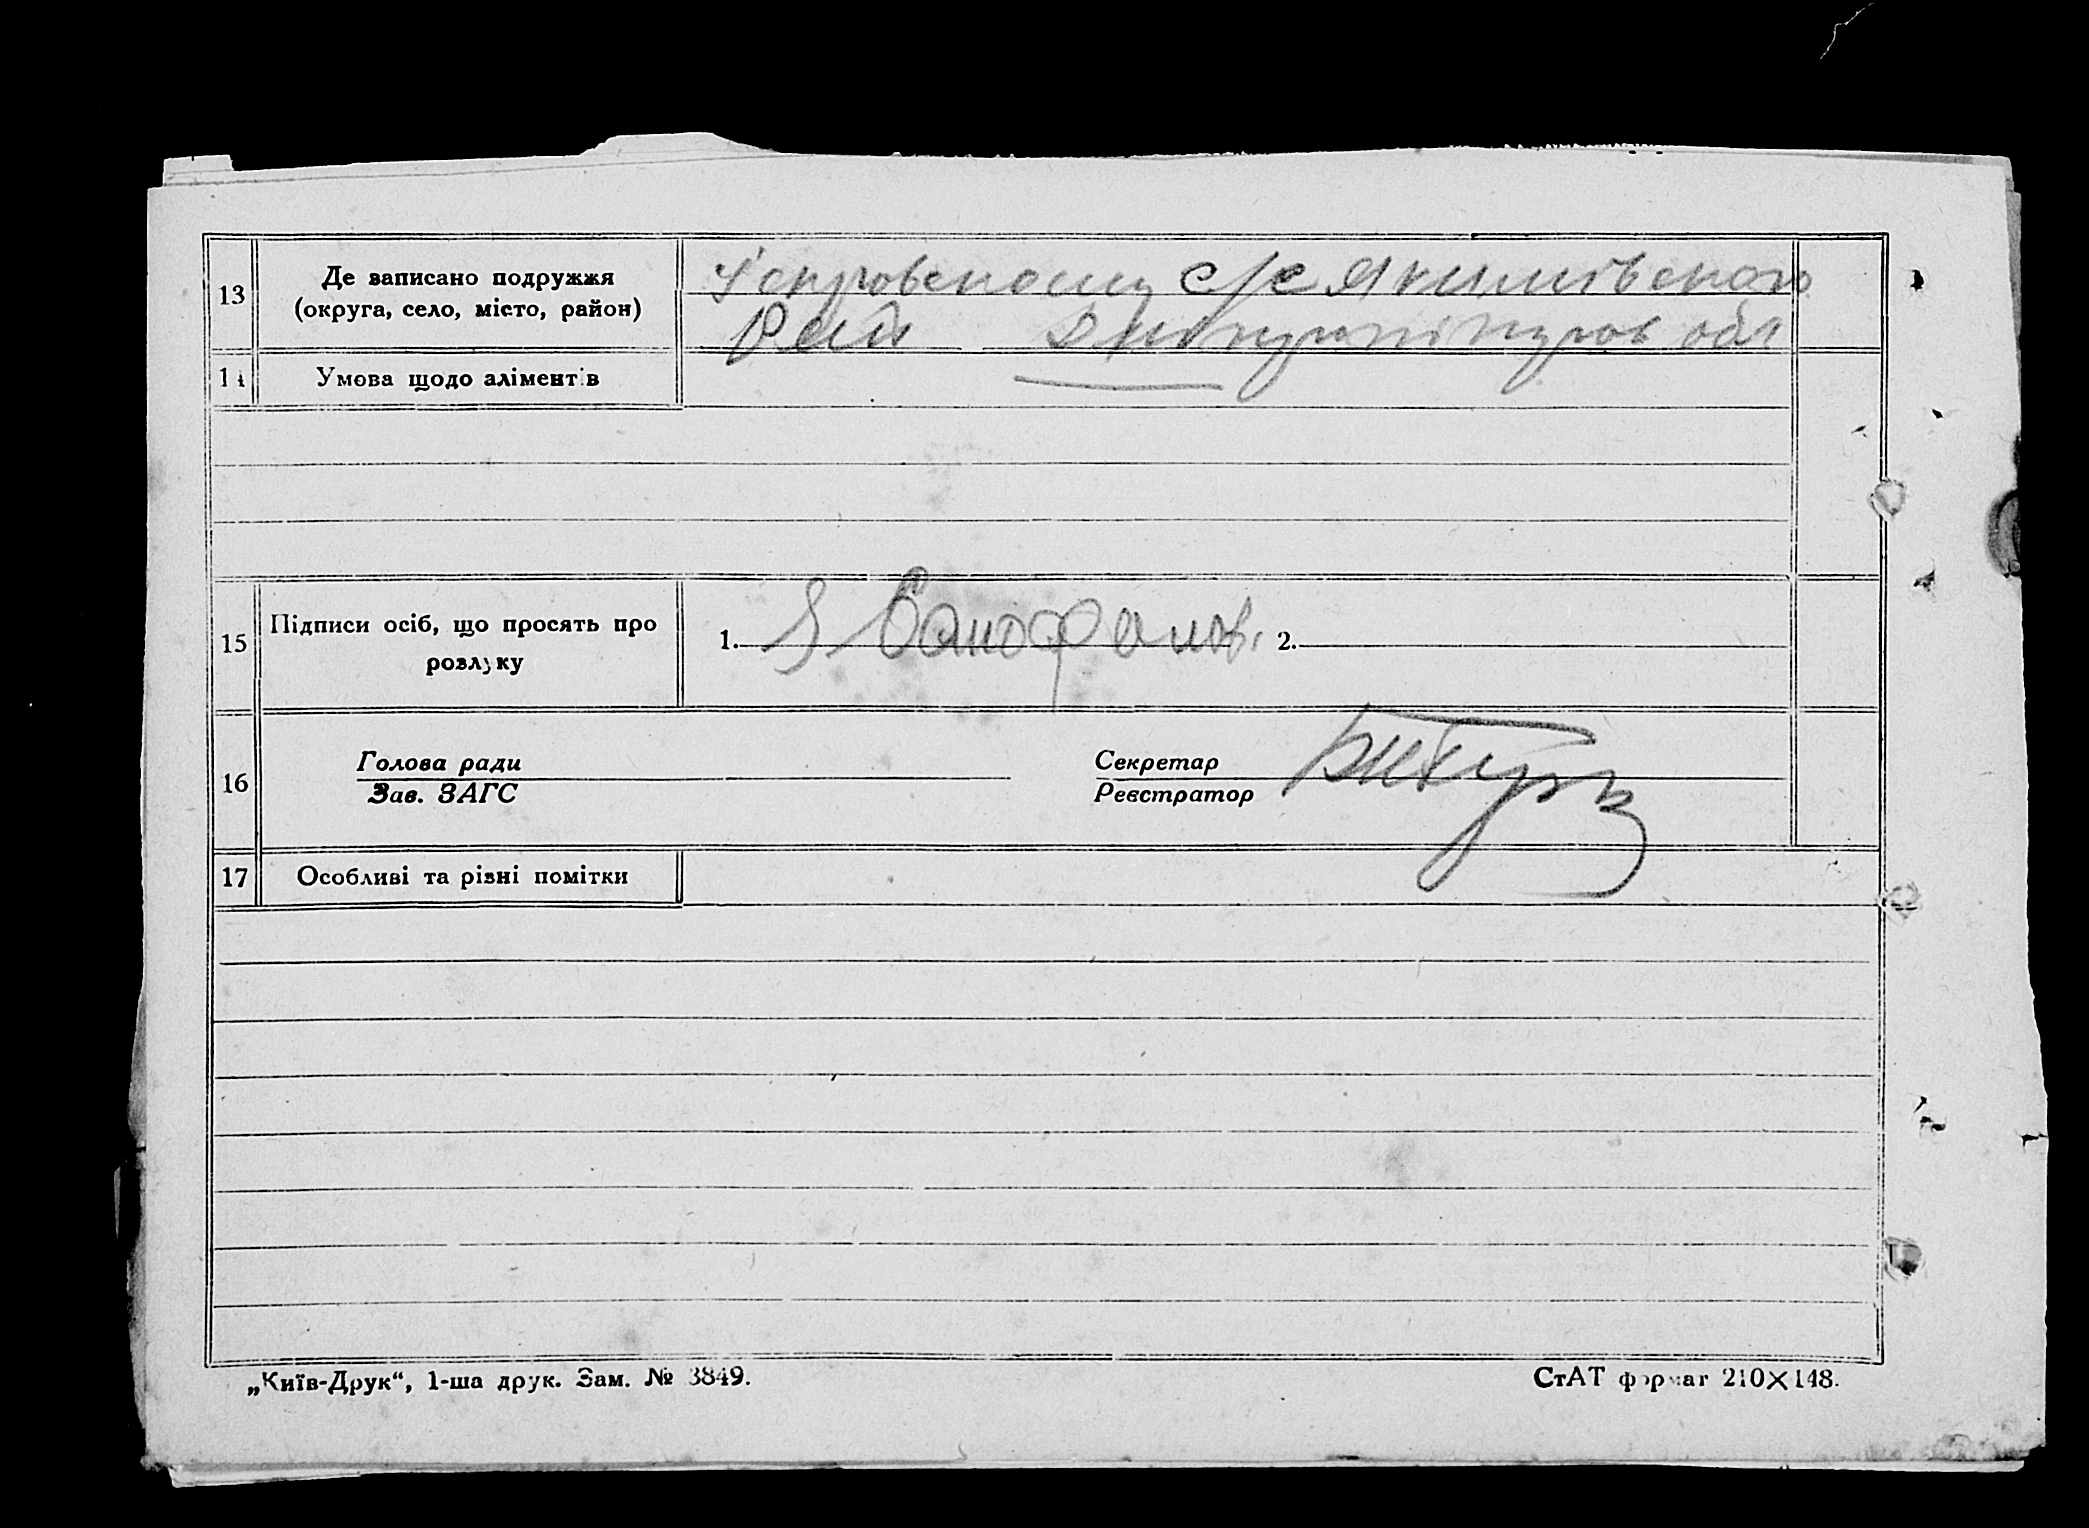 13 Де записано подружжя
(округа, село, місто, район)
с/с Якимівського
Рай Дніпропітров обл
14 Умова щодо аліментів
15 Підписи осіб, що просять про
розлуку
1. 2.
16 Голова ради
Зав. ЗАГС
Секретар
Реєстратор
17 Особливі та різні помітки
„Київ-Друк“, 1-ша друк. Зам. № 3849.
СтАТ формат 210×148.